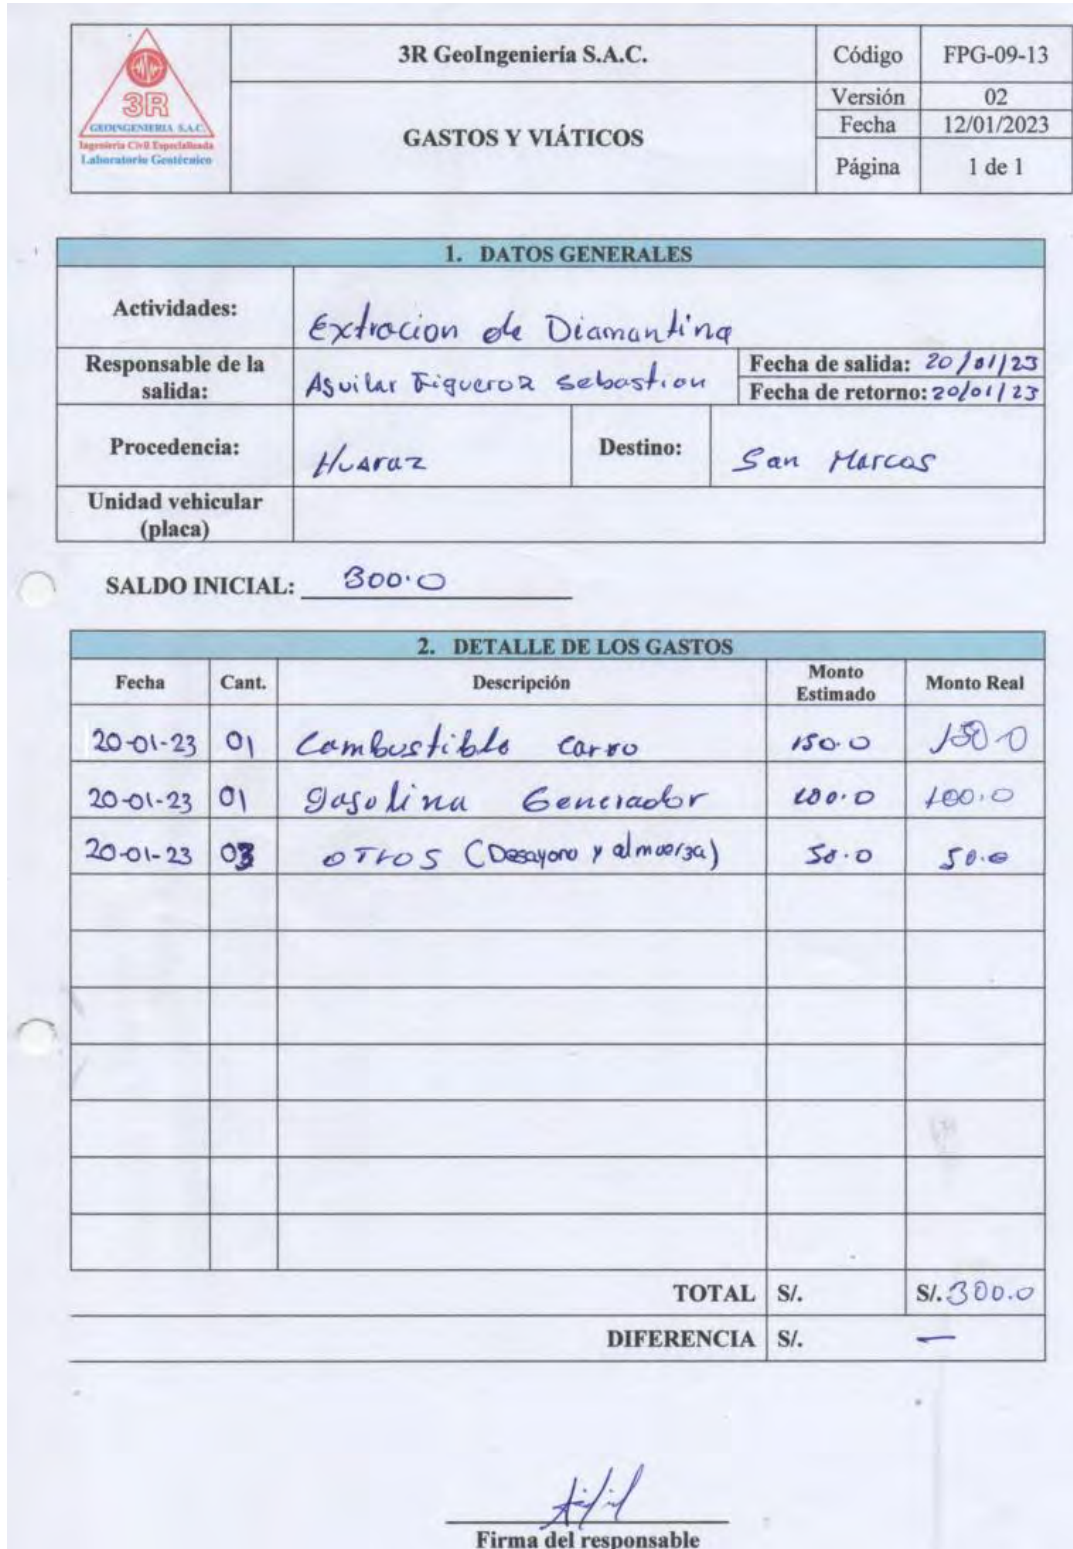 3R
GEOINGENIERIA S.A.C.
Ingeniería Civil Especializada
Laboratorio Geotécnico
3R GeoIngeniería S.A.C.
Código FPG-09-13
GASTOS Y VIÁTICOS
Versión 02
Fecha 12/01/2023
Página 1 de 1
1. DATOS GENERALES
Actividades: Extracion de Diamantina
Responsable de la salida: Aguilar Figueroa Sebastian
Fecha de salida: 20/01/23
Fecha de retorno: 20/01/23
Procedencia: Huaraz Destino: San Marcos
Unidad vehicular (placa)
SALDO INICIAL: 300.0
2. DETALLE DE LOS GASTOS
Fecha Cant. Descripción Monto Estimado Monto Real
20-01-23 01 Combustible carro 150.0 150.0
20-01-23 01 gasolina Generador 100.0 100.0
20-01-23 03 OTROS (Desayono y almuerza) 50.0 50.0
TOTAL S/. S/. 300.0
DIFERENCIA S/. —
Firma del responsable